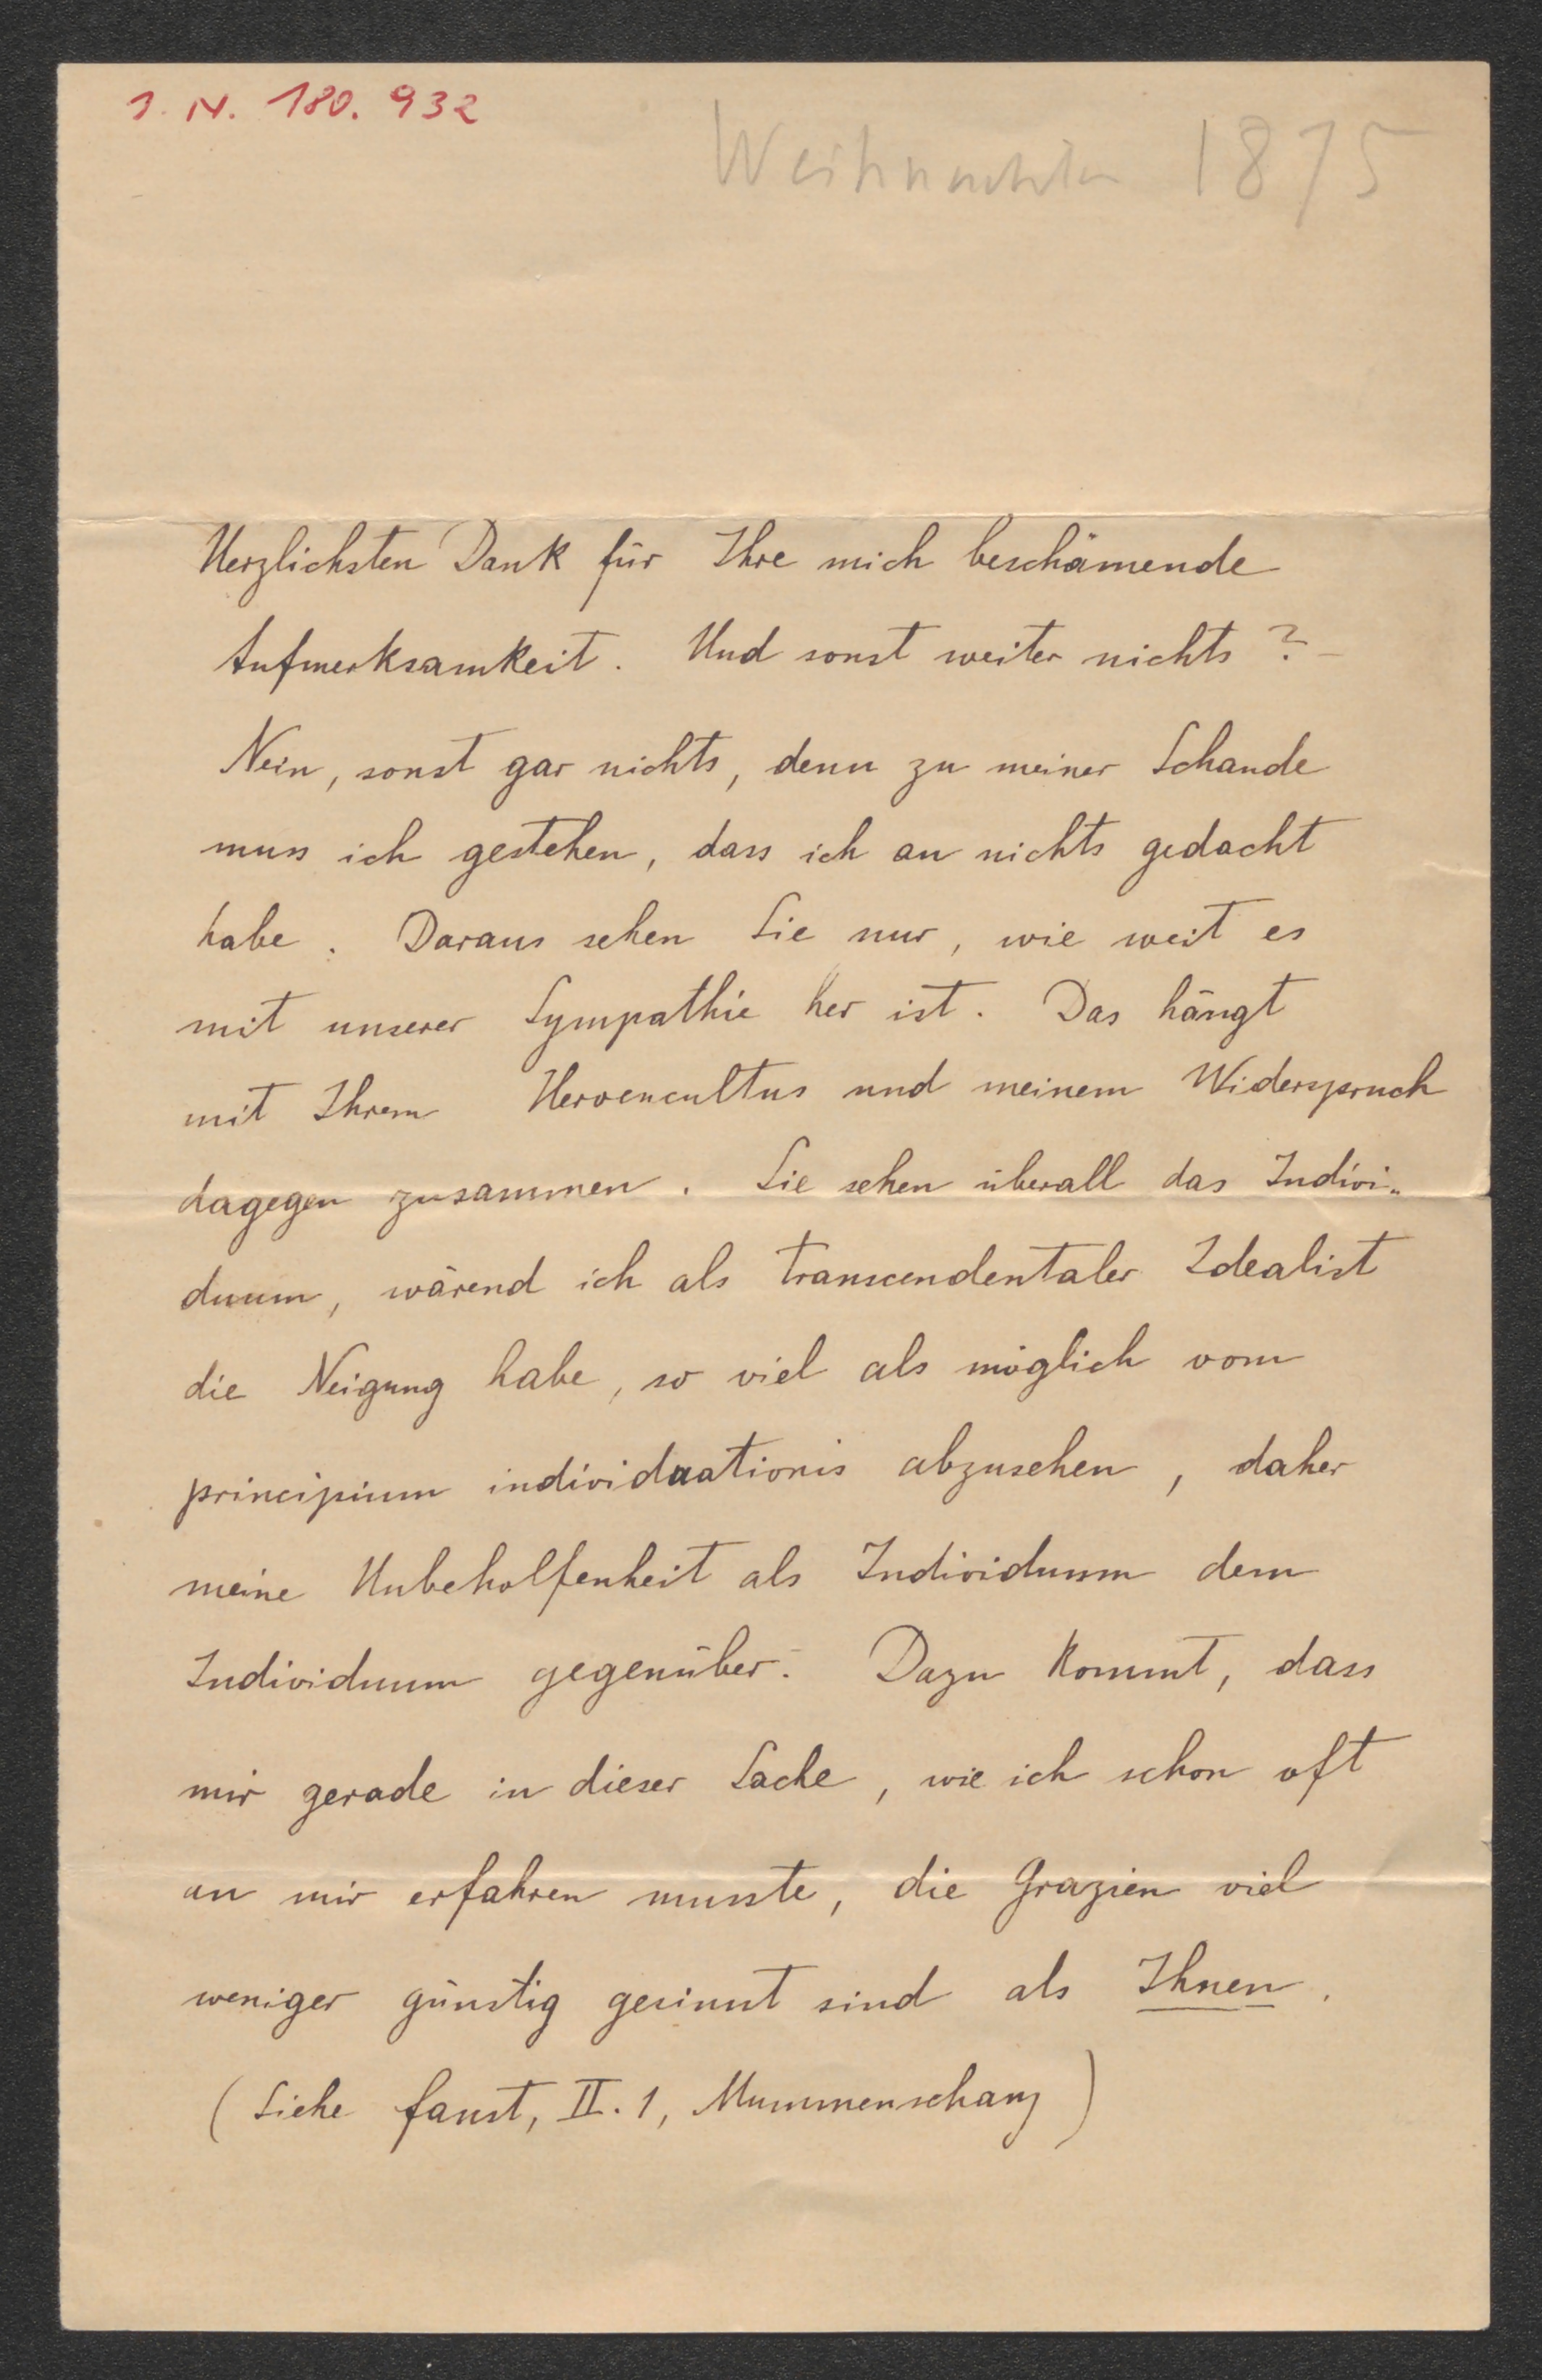 I. N. 180.932
Weihnachten 1875
Herzlichsten Dank für Ihre mich beschämende
Aufmerksamkeit. Und sonst weiter nichts? –
Nein, sonst gar nichts, denn zu meiner Schande
muss ich gestehen, dass ich an nichts gedacht
habe. Daraus sehen Sie nur, wie weit es
mit unserer Sympathie her ist. Das hängt
mit Ihrem Heroencultus und meinem Widerspruch
dagegen zusammen. Sie sehen überall das Indivi-
duum, wärend ich als transcendentaler Idealist
die Neigung habe, so viel als möglich vom
principium individuationis abzusehen, daher
meine Unbeholfenheit als Individuum dem
Individuum gegenüber. Dazu kommt, dass
mir gerade in dieser Sache, wie ich schon oft
an mir erfahren musste, die Grazien viel
weniger günstig gesinnt sind als Ihnen.
(Siehe Faust, II. 1, Mummenschanz)